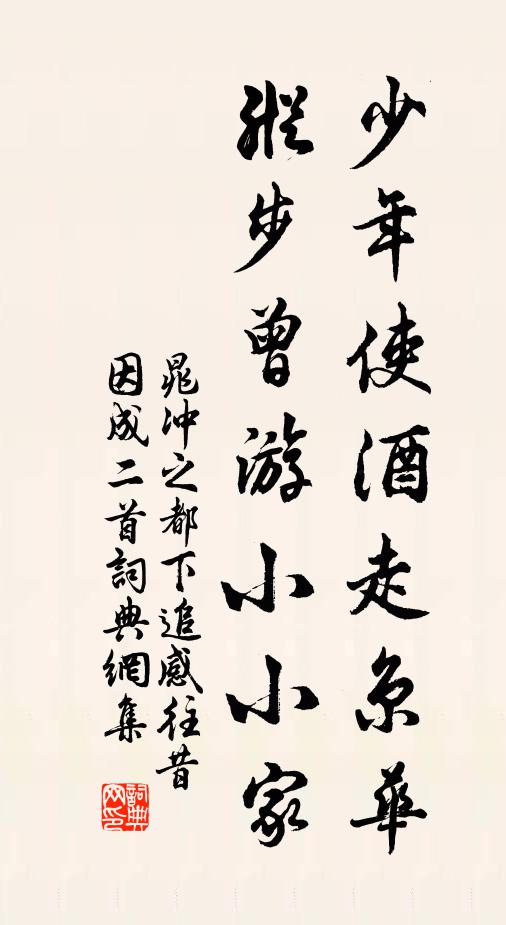 少年使酒走京華
縱步曾游小小家
晁沖之都下追感往昔
因成二首詞典網集
詞典網印